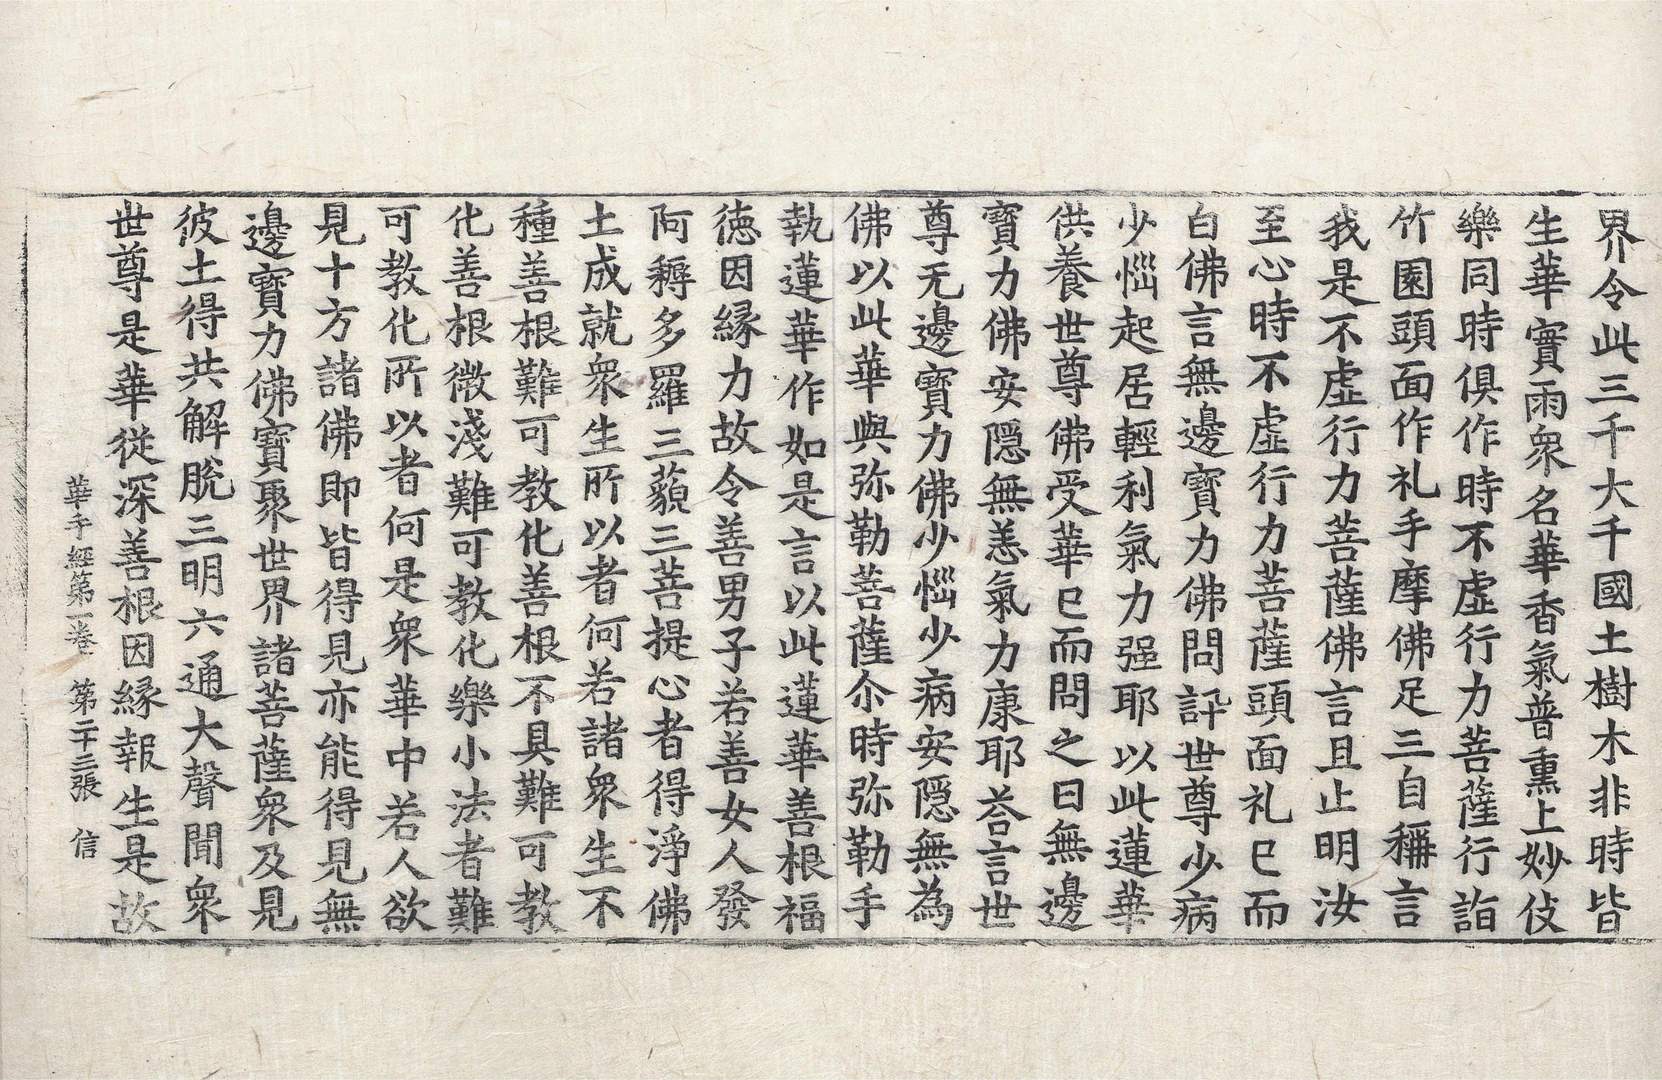 界令此三千大千國土樹木非時皆
生華實雨衆名華香氣普熏上妙伎
樂同時俱作時不虛行力菩薩行詣
竹園頭面作礼手摩佛足三自稱言
我是不虛行力菩薩佛言且止明汝
至心時不虛行力菩薩頭面礼已而
白佛言無邊寶力佛問訊世尊少病
少惱起居輕利氣力强耶以此蓮華
供養世尊佛受華已而問之曰無邊
寶力佛安隱無恙氣力康耶荅言世
尊无邊寶力佛少惱少病安隱無為
佛以此華與弥勒菩薩尒時弥勒手
執蓮華作如是言以此蓮華善根福
德因緣力故令善男子若善女人發
阿耨多羅三藐三菩提心者得淨佛
土成就衆生所以者何若諸衆生不
種善根難可教化善根不具難可教
化善根微淺難可教化樂小法者難
可教化所以者何是衆華中若人欲
見十方諸佛即皆得見亦能得見無
邊寶力佛寶聚世界諸菩薩衆及見
彼土得共解脫三明六通大聲聞衆
世尊是華從深善根因緣報生是故
華手經第一卷 第二十三張 信